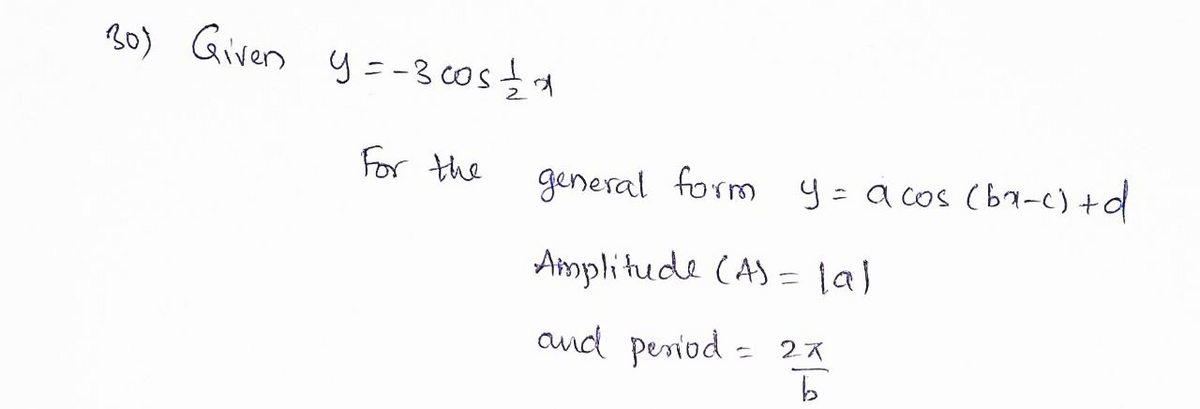 30) Given y = -3 cos 1/2 x
For the general form y = a cos (bx-c) + d
Amplitude (A) = |a|
and period = 2π/b